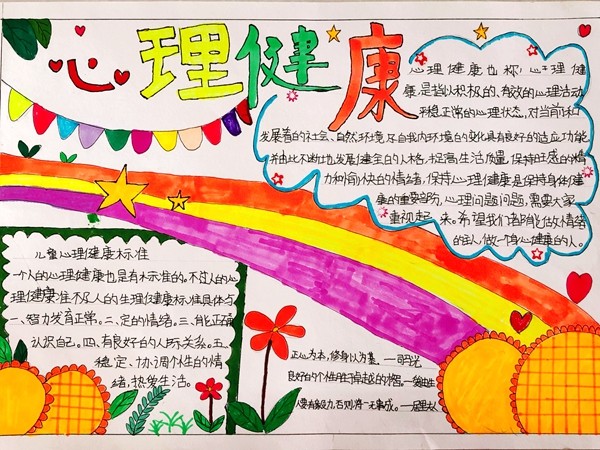 心理健康
心理健康也称心理健
康,是指以积极的、有效的心理活动
平稳正常的心理状态,对当前和
发展着的社会、自然环境及自我内环境的变化具有良好的适应功能
并由此不断地发展健全的人格,提高生活质量,保持旺盛的精
力和愉快的情绪,保持心理健康是保持身体健
康的重要部分,心理问题问题,需要大家
重视起来。希望我们都能做情绪
的主人,做一个身心健康的人。
儿童心理健康标准
一个人的心理健康也是有标准的。不过人的心
理健康准不及人的生理健康标准具体与
一、智力发育正常。二、定的情绪。三、能正确
认识自己。四、有良好的人际关系。五、
稳定、协调个性的情
绪,热爱生活。
正心为本,修身以为基,一
良好的个性胜卓越的
人要有毅力,否则将一无事成。一居里夫人